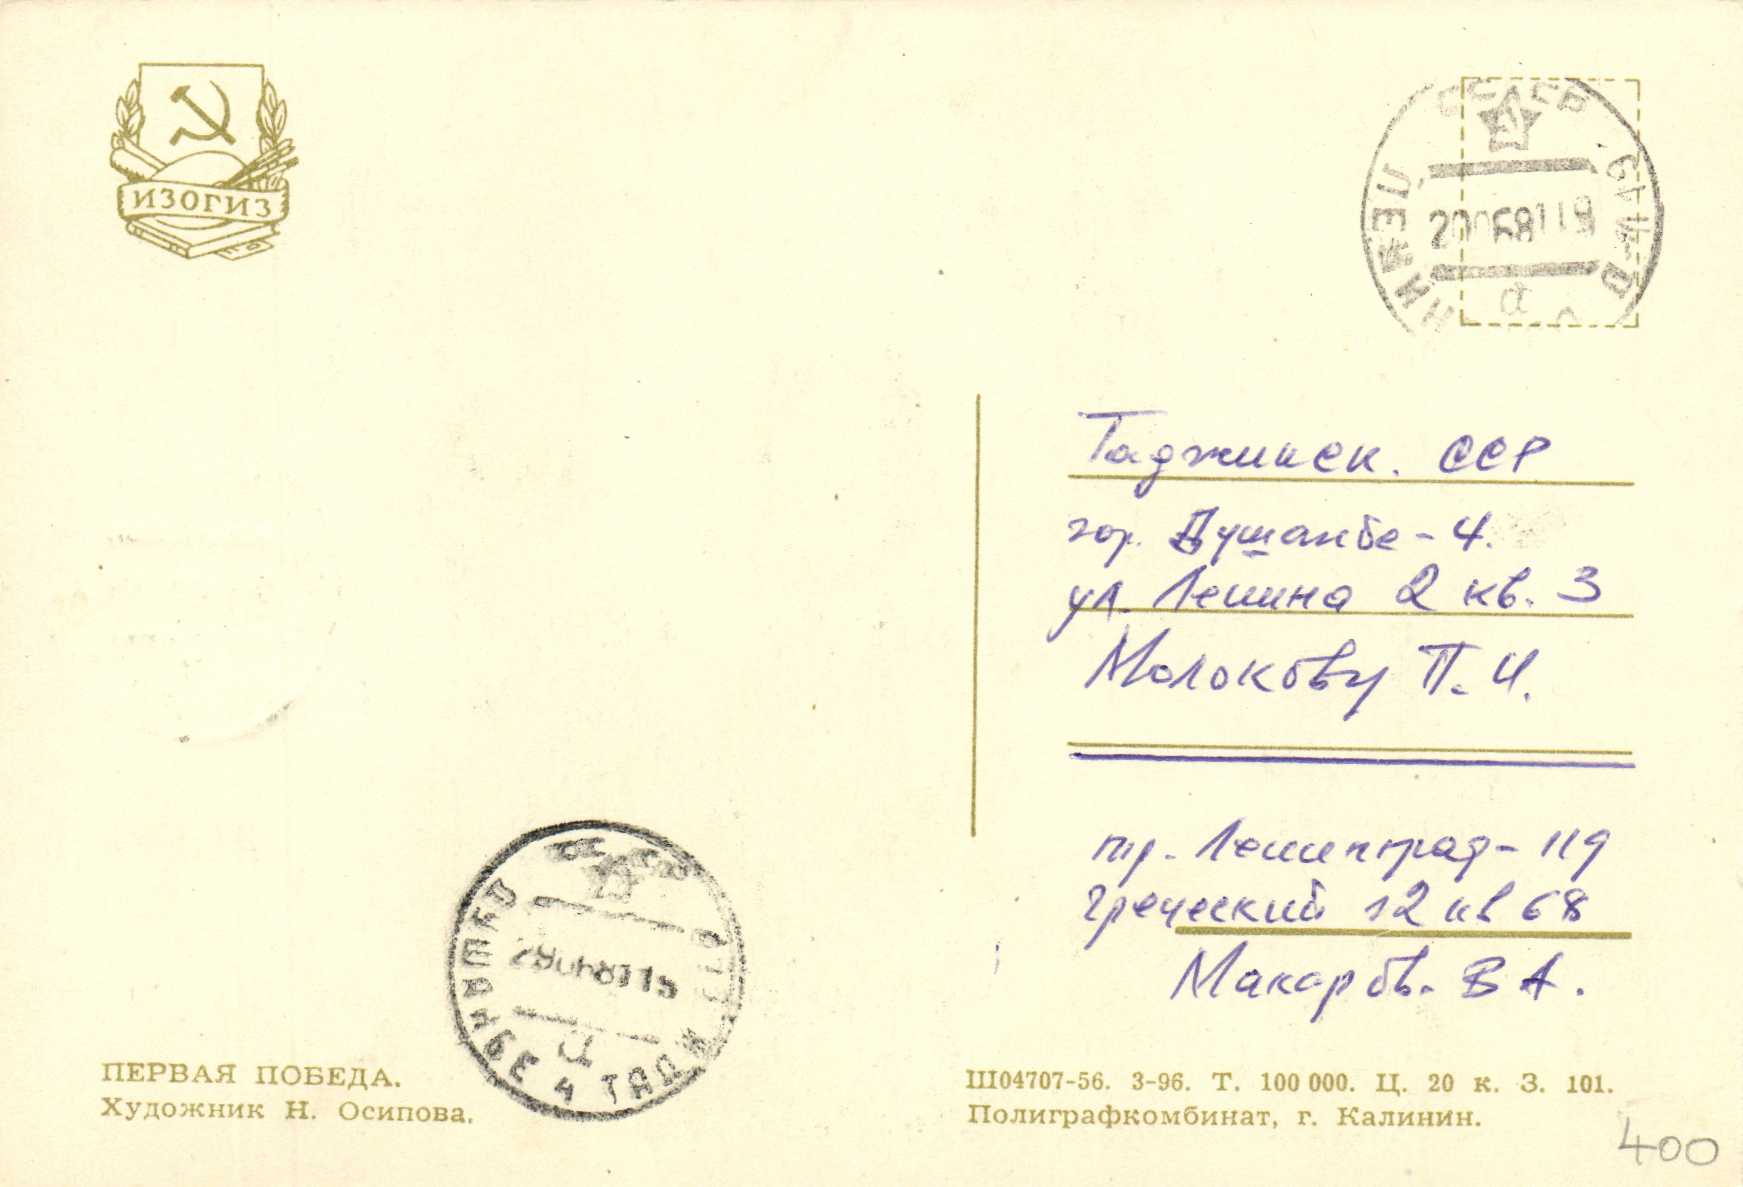 ИЗОГИЗ
СССР
200681119
Таджикск. ССР
гор. Душанбе-4.
ул. Ленина 2 кв. 3
Молокову П. И.
пр. Ленинград-119
Греческий 12 кв 68
Макаров. В А.
ДУШАНБЕ 4 ТАДЖ
ПЕРВАЯ ПОБЕДА.
Художник Н. Осипова.
Ш04707-56. 3-96. Т. 100 000. Ц. 20 к. З. 101.
Полиграфкомбинат, г. Калинин.
400